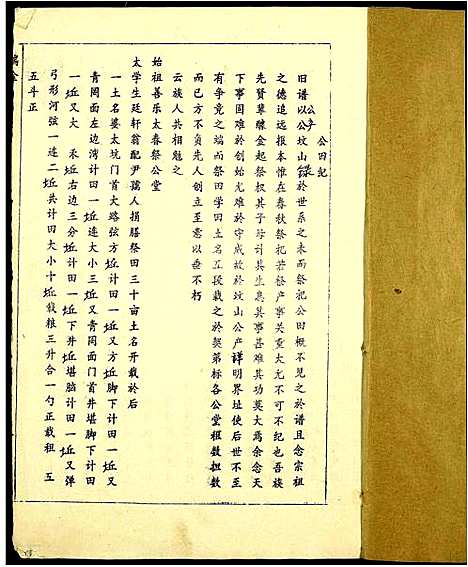 公田記
旧谱以公坟山公产錄於世系之末而祭祀公田概不見之於谱且念宗祖
之德追远报本惟在春秋祭祀若祭产事关重大尤不可不纪也吾族
先賢辈醵金起祭权其子母计其生息其事甚难其功莫大焉余念天
下事固难於创始尤难於守成故於坟山公产詳明界址使后世不至
有争竞之端而祭田学田土名工段载之於契第标各公堂租数担数
而已方不负先人创立至意以垂不朽
云族人共相勉之
始祖善乐太春祭公堂
太学生廷轩翁配尹孺人捐膳祭田三十亩土名开载於后
一土名婆太坑门首大路弦方坵计田一坵又方坵脚下计田一坵又
青岡面左边湾计田一坵连大小三坵又青岡面门首井堪脚下计田
一坵又大 禾坵右边三分坵计田一坵下井坵堪脑计田一坵又洋
弓形河弦一连二坵共计田大小十坵載粮三升合一勺正载租 五
五斗正